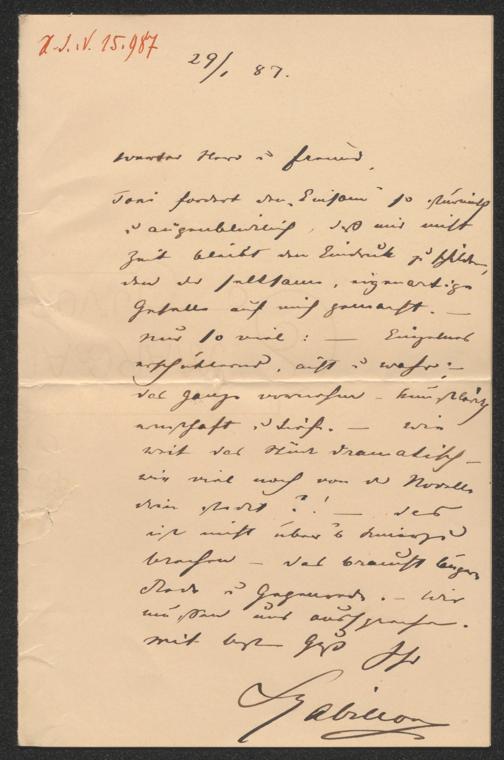 H.I.N. 15.987
29/1 87.
werter Herr u Freund,
Toni fordert den "Einsam" so stürmisch
u augenblicklich, daß mir nicht
Zeit bleibt den Eindruck zu schildern,
den der seltsame, eigenartige
Geselle auf mich gemacht. —
Nur so viel: — Einzelnes
erschütternd, ächt u wahr; —
das Ganze vornehm - künstlerisch
ernsthaft u tief. — wie
weit das Stück dramatisch —
wie viel noch von der Novelle
drin steckt?! — das
ist nicht über's Knie zu
brechen — das braucht längere
Rede u Gegenrede. — Wir
müssen uns aussprechen.
mit best Gruß Ihr
LGabillon